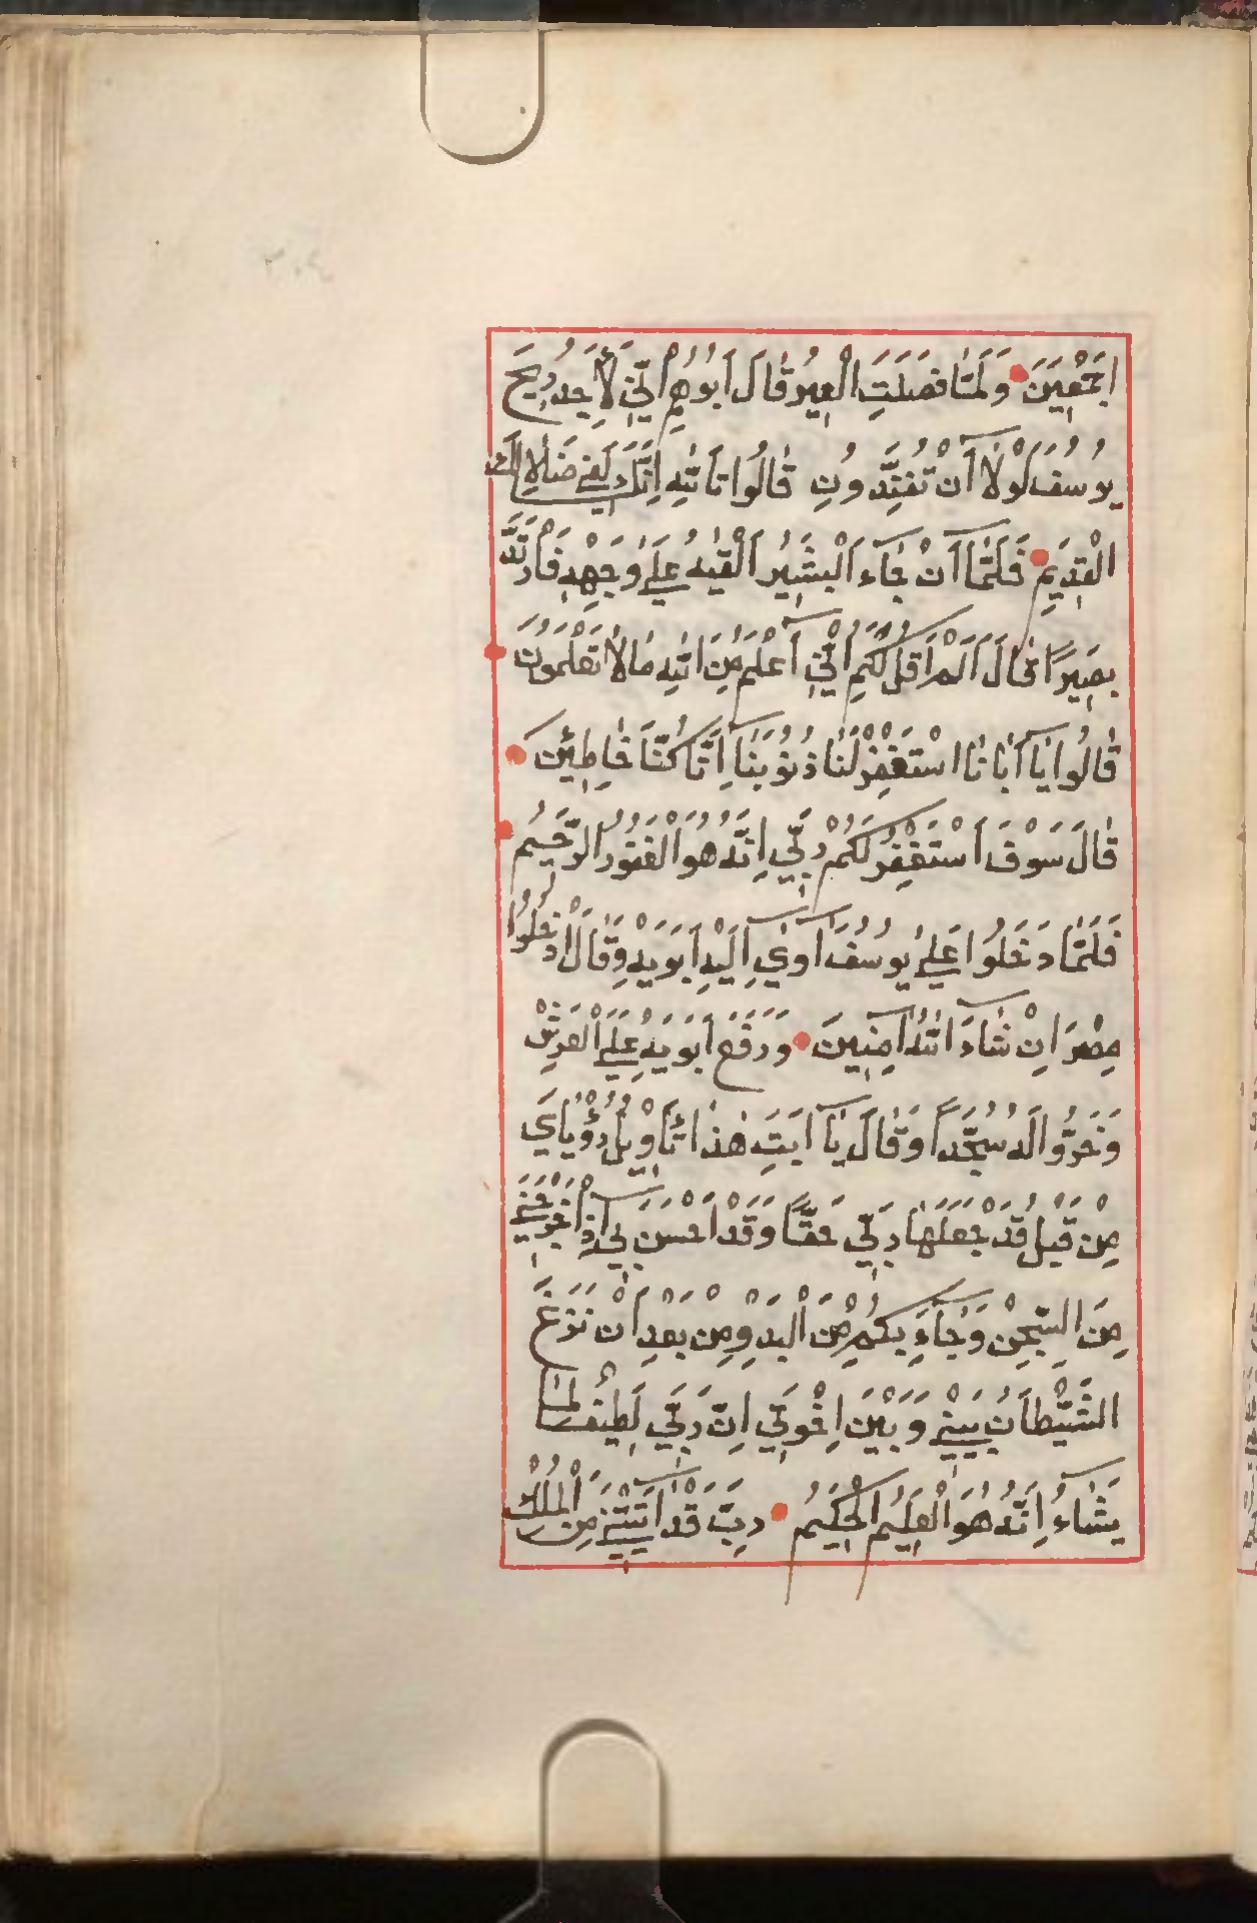 اَجْمَعِينَ وَلَمَّا فَصَلَتِ الْعِيرُ قَالَ اَبُوهُمْ اِنِّي لَاَجِدُ رِيحَ
يُوسُفَ لَوْلَا اَنْ تُفَنِّدُونِ قَالُوا تَاللّٰهِ اِنَّكَ لَفِي ضَلَالِكَ
الْقَدِيمِ فَلَمَّا اَنْ جَاءَ الْبَشِيرُ اَلْقٰيهُ عَلٰي وَجْهِهِ فَارْتَدَّ
بَصِيرًا قَالَ اَلَمْ اَقُلْ لَكُمْ اِنِّي اَعْلَمُ مِنَ اللّٰهِ مَا لَا تَعْلَمُونَ
قَالُوا يَا اَبَانَا اسْتَغْفِرْ لَنَا ذُنُوبَنَا اِنَّا كُنَّا خَاطِئِينَ
قَالَ سَوْفَ اَسْتَغْفِرُ لَكُمْ رَبِّي اِنَّهُ هُوَ الْغَفُورُ الرَّحِيمُ
فَلَمَّا دَخَلُوا عَلٰي يُوسُفَ اٰوٰي اِلَيْهِ اَبَوَيْهِ وَقَالَ ادْخُلُوا
مِصْرَ اِنْ شَاءَ اللّٰهُ اٰمِنِينَ وَرَفَعَ اَبَوَيْهِ عَلَي الْعَرْشِ
وَخَرُّوا لَهُ سُجَّدًا وَقَالَ يَا اَبَتِ هٰذَا تَأْوِيلُ رُؤْيَايَ
مِنْ قَبْلُ قَدْ جَعَلَهَا رَبِّي حَقًّا وَقَدْ اَحْسَنَ بِي اِذْ اَخْرَجَنِي
مِنَ السِّجْنِ وَجَاءَ بِكُمْ مِنَ الْبَدْوِ مِنْ بَعْدِ اَنْ نَزَغَ
الشَّيْطَانُ بَيْنِي وَبَيْنَ اِخْوَتِي اِنَّ رَبِّي لَطِيفٌ لِمَا
يَشَاءُ اِنَّهُ هُوَ الْعَلِيمُ الْحَكِيمُ رَبِّ قَدْ اٰتَيْتَنِي مِنَ الْمُلْكِ